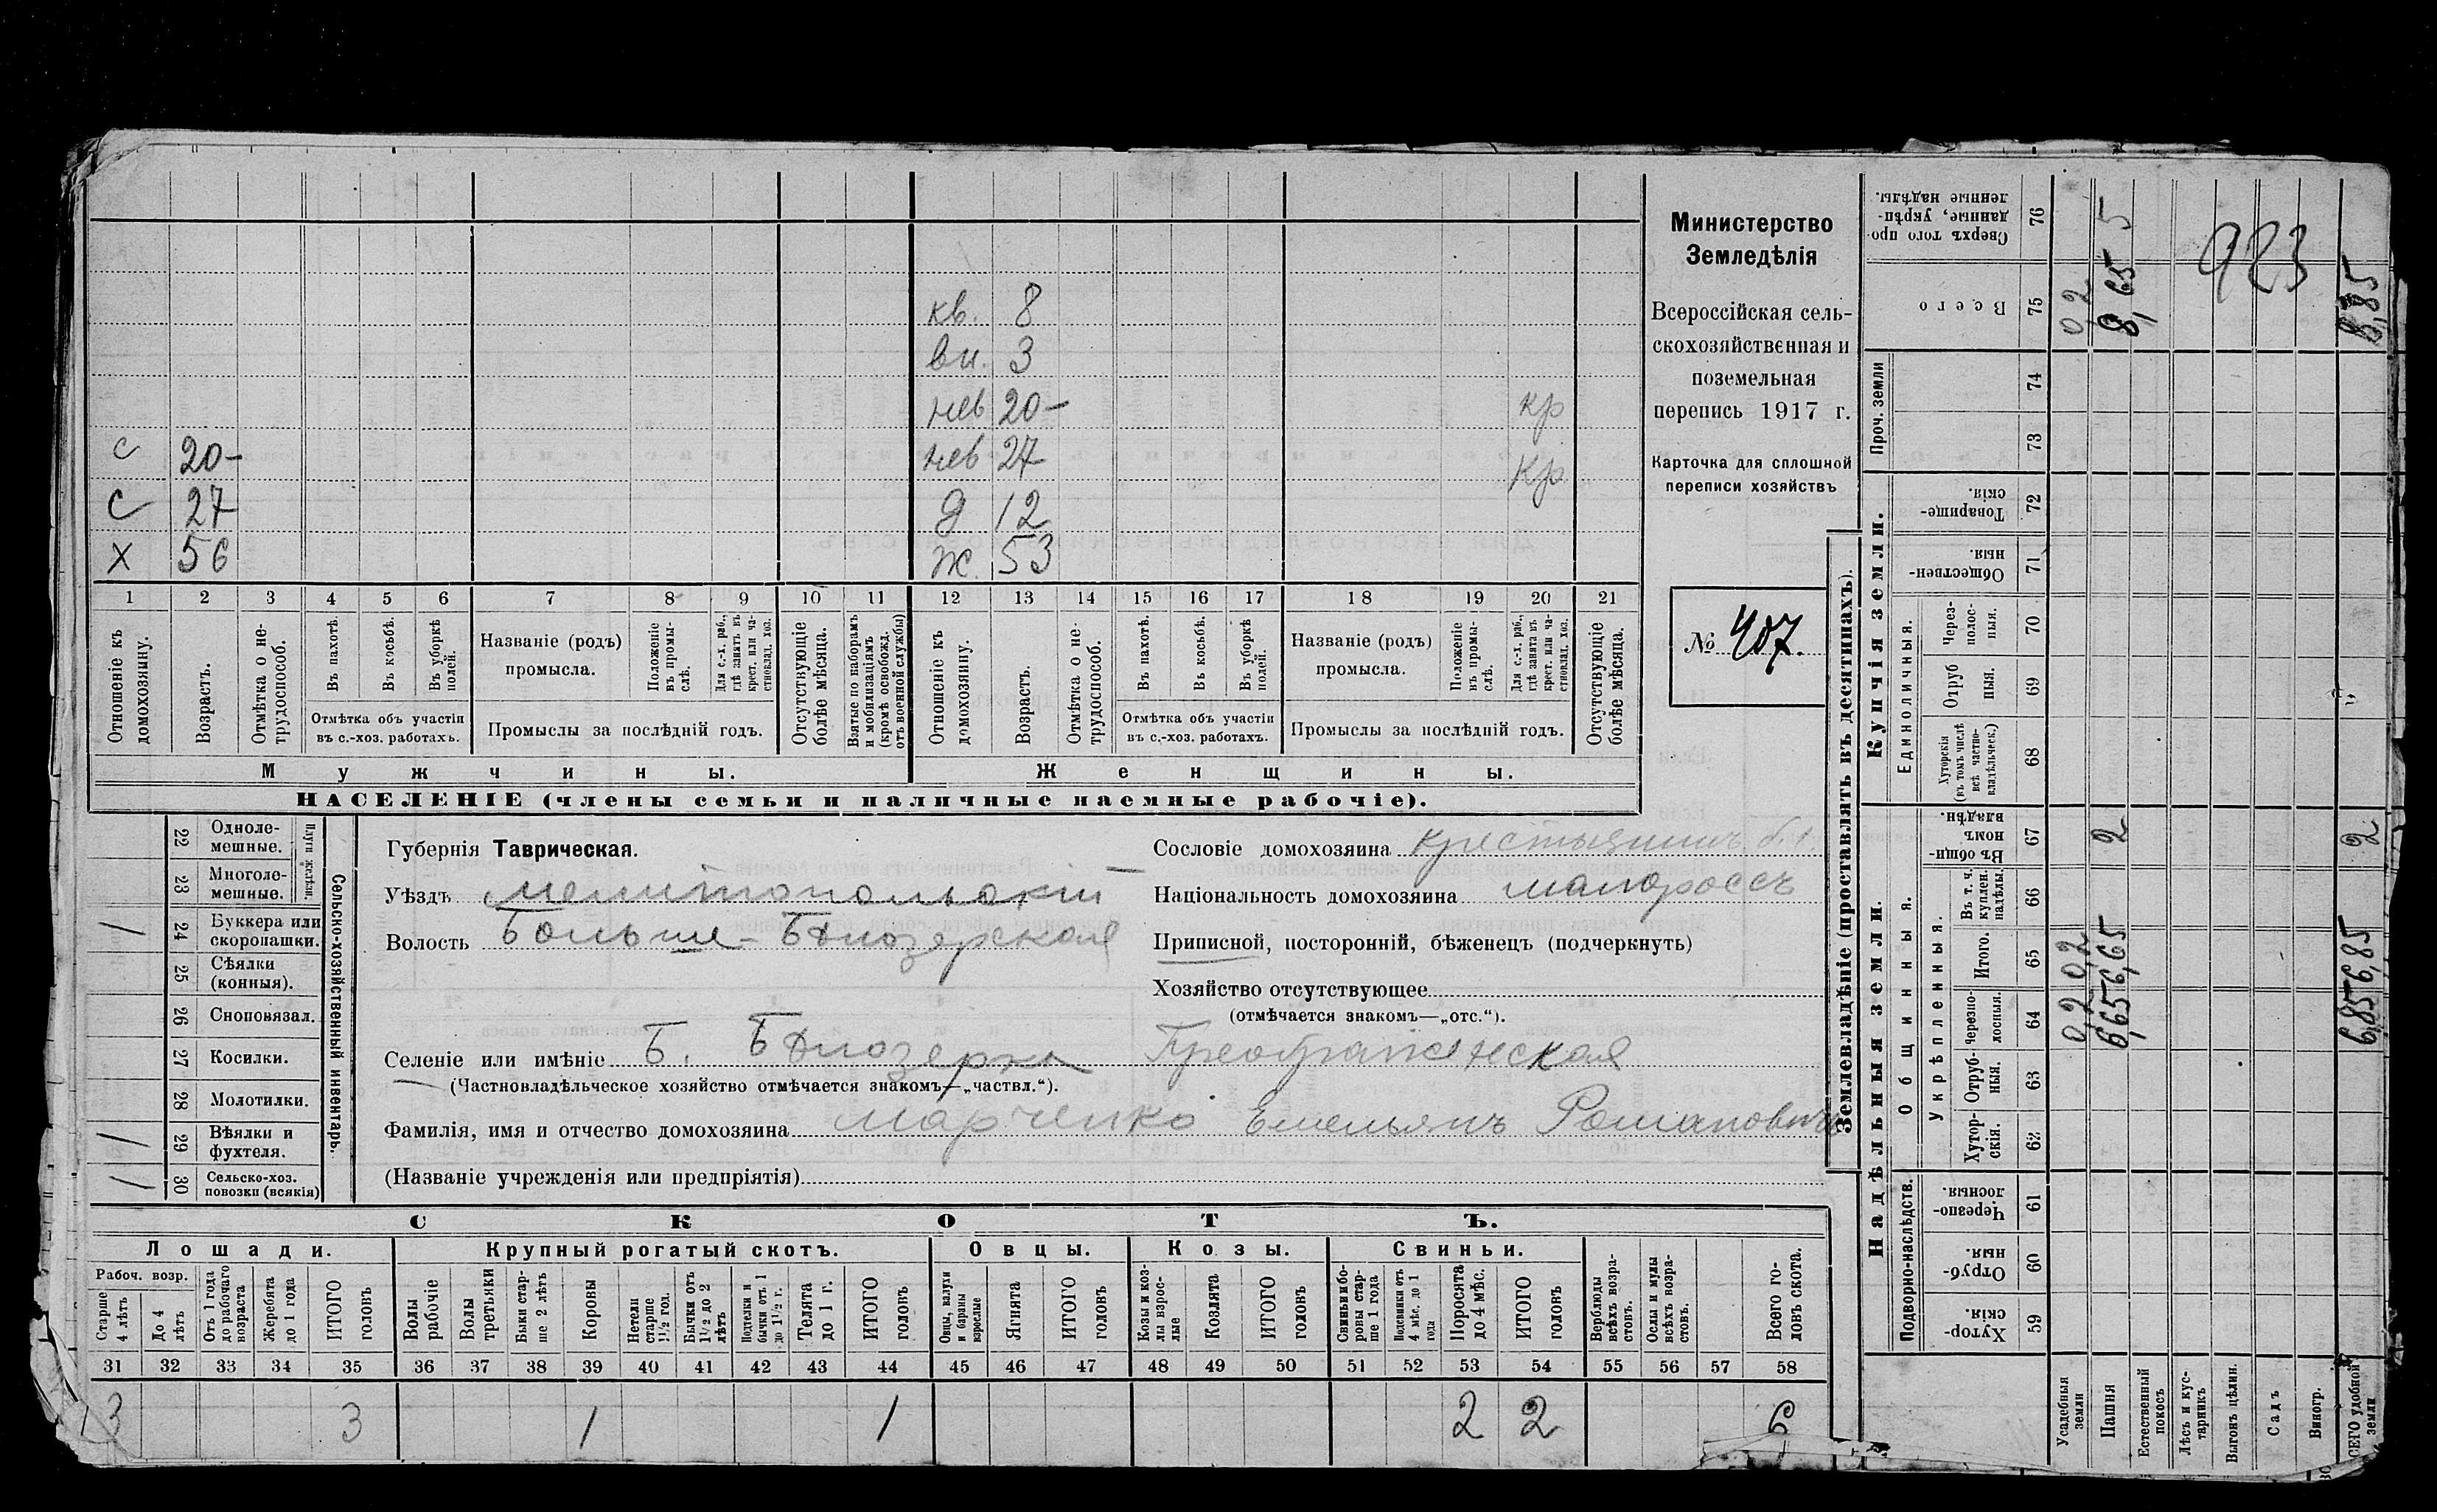 кв. 8
вн. 3
нев 20- кр
с 20- нев 27 кр
с 27 д 12
х 56 ж. 53
1 2 3 4 5 6 7 8 9 10 11 12 13 14 15 16 17 18 19 20 21
Отношеніе къ домохозяину.
Возрастъ.
Отмѣтка о не-трудоспособ.
Въ пахотѣ.
Въ косьбѣ.
Въ уборкѣ полей.
Отмѣтка объ участіи
въ с.-хоз. работахъ.
Названіе (родъ)
промысла.
Положеніе въ промы-слѣ.
Для с.-х. раб., гдѣ занятъ въ крест. или ча-стновлад. хоз.
Промыслы за послѣдній годъ.
Отсутствующіе болѣе мѣсяца.
Взятые по наборамъ и мобилизаціямъ (кромѣ освобожд. отъ военной службы)
Отношеніе къ домохозяину.
Возрастъ.
Отмѣтка о не-трудоспособ.
Въ пахотѣ.
Въ косьбѣ.
Въ уборкѣ полей.
Отмѣтка объ участіи
въ с.-хоз. работахъ.
Названіе (родъ)
промысла.
Положеніе въ промы-слѣ.
Для с.-х. раб., гдѣ занятъ въ крест. или ча-стновлад. хоз.
Промыслы за послѣдній годъ.
Отсутствующіе болѣе мѣсяца.
Мужчины. Женщины.
НАСЕЛЕНІЕ (члены семьи и наличные наемные рабочіе).
Министерство
Земледѣлія
Всероссійская сель-
скохозяйственная и
поземельная
перепись 1917 г.
Карточка для сплошной
переписи хозяйствъ
№ 407.
Сельско-хозяйственный инвентарь.
Плуги желѣзн.
22 Одноле-мешные.
23 Многоле-мешные.
/ 24 Буккера или скоропашки.
25 Сѣялки (конныя).
26 Сноповязал.
27 Косилки.
28 Молотилки.
/ 29 Вѣялки и фухтеля.
/ 30 Сельско-хоз. повозки (всякія)
Губернія Таврическая.
Уѣздъ Мелитопольскій
Волость Больше-Бѣлозерская
Селеніе или имѣніе Б. Бѣлозерка Преображенская
(Частновладѣльческое хозяйство отмѣчается знакомъ—„частвл.“).
Фамилія, имя и отчество домохозяина Марченко Емельянъ Романовичъ
(Названіе учрежденія или предпріятія)
Сословіе домохозяина крестьянинъ
Національность домохозяина малороссъ
Приписной, посторонній, бѣженецъ (подчеркнуть)
Хозяйство отсутствующее
(отмѣчается знакомъ—„отс.“).
СКОТЪ.
Лошади. Крупный рогатый скотъ. Овцы. Козы. Свиньи.
Рабоч. возр.
Старше 4 лѣтъ
До 4 лѣтъ
Отъ 1 года до рабочаго возраста
Жеребята до 1 года
ИТОГО головъ
Волы рабочіе
Волы третьяки
Быки стар-ше 2 лѣтъ
Коровы
Нетели старше 1 1/2 год.
Бычки отъ 1 1/2 до 2 лѣтъ
Подтелки и бычки отъ 1 до 1 1/2 г.
Телята до 1 г.
ИТОГО головъ
Овцы, валухи и бараны взрослые
Ягнята
ИТОГО головъ
Козы и коз-лы взрос-лые
Козлята
ИТОГО головъ
Свиньи и бо-ровы стар-ше 1 года
Подсвинки отъ 4 мѣс. до 1 года
Поросята до 4 мѣс.
ИТОГО головъ
Верблюды всѣхъ возра-стовъ.
Ослы и мулы всѣхъ возра-стовъ.
Всего го-ловъ скота.
31 32 33 34 35 36 37 38 39 40 41 42 43 44 45 46 47 48 49 50 51 52 53 54 55 56 57 58
3 3 1 1 2 2 6
Землевладѣніе (проставлять въ десятинахъ).
Надѣльныя земли.
Купчія земли.
Проч. земли
Подворно-наслѣдств.
Общинныя.
Укрѣпленныя.
Единоличныя.
59 Хутор-скія.
60 Отруб-ныя.
61 Черезпо-лосныя.
62 Хутор-скія.
63 Отруб-ныя.
64 Черезпо-лосныя.
65 Итого.
66 Въ т. ч. куплен. надѣлы.
67 Въ общи-номъ владѣн.
68 Хуторскія (въ томъ числѣ всѣ частно-владѣльческ.)
69 Отруб ныя.
70 Через-полос-ныя.
71 Обществен-ныя.
72 Товарище-скія.
73
74
75 Всего
76 Сверхъ того про-данные, укрѣп-ленные надѣлы.
Усадебныя земли 0,2 0,2 0,2
Пашня 6,65 6,65 2 8,65 5
Естественный покосъ
Лѣсъ и кус-тарникъ
Выгонъ цѣлин.
Садъ
Виногр.
ВСЕГО удобной земли 6,85 6,85 2 8,85
923